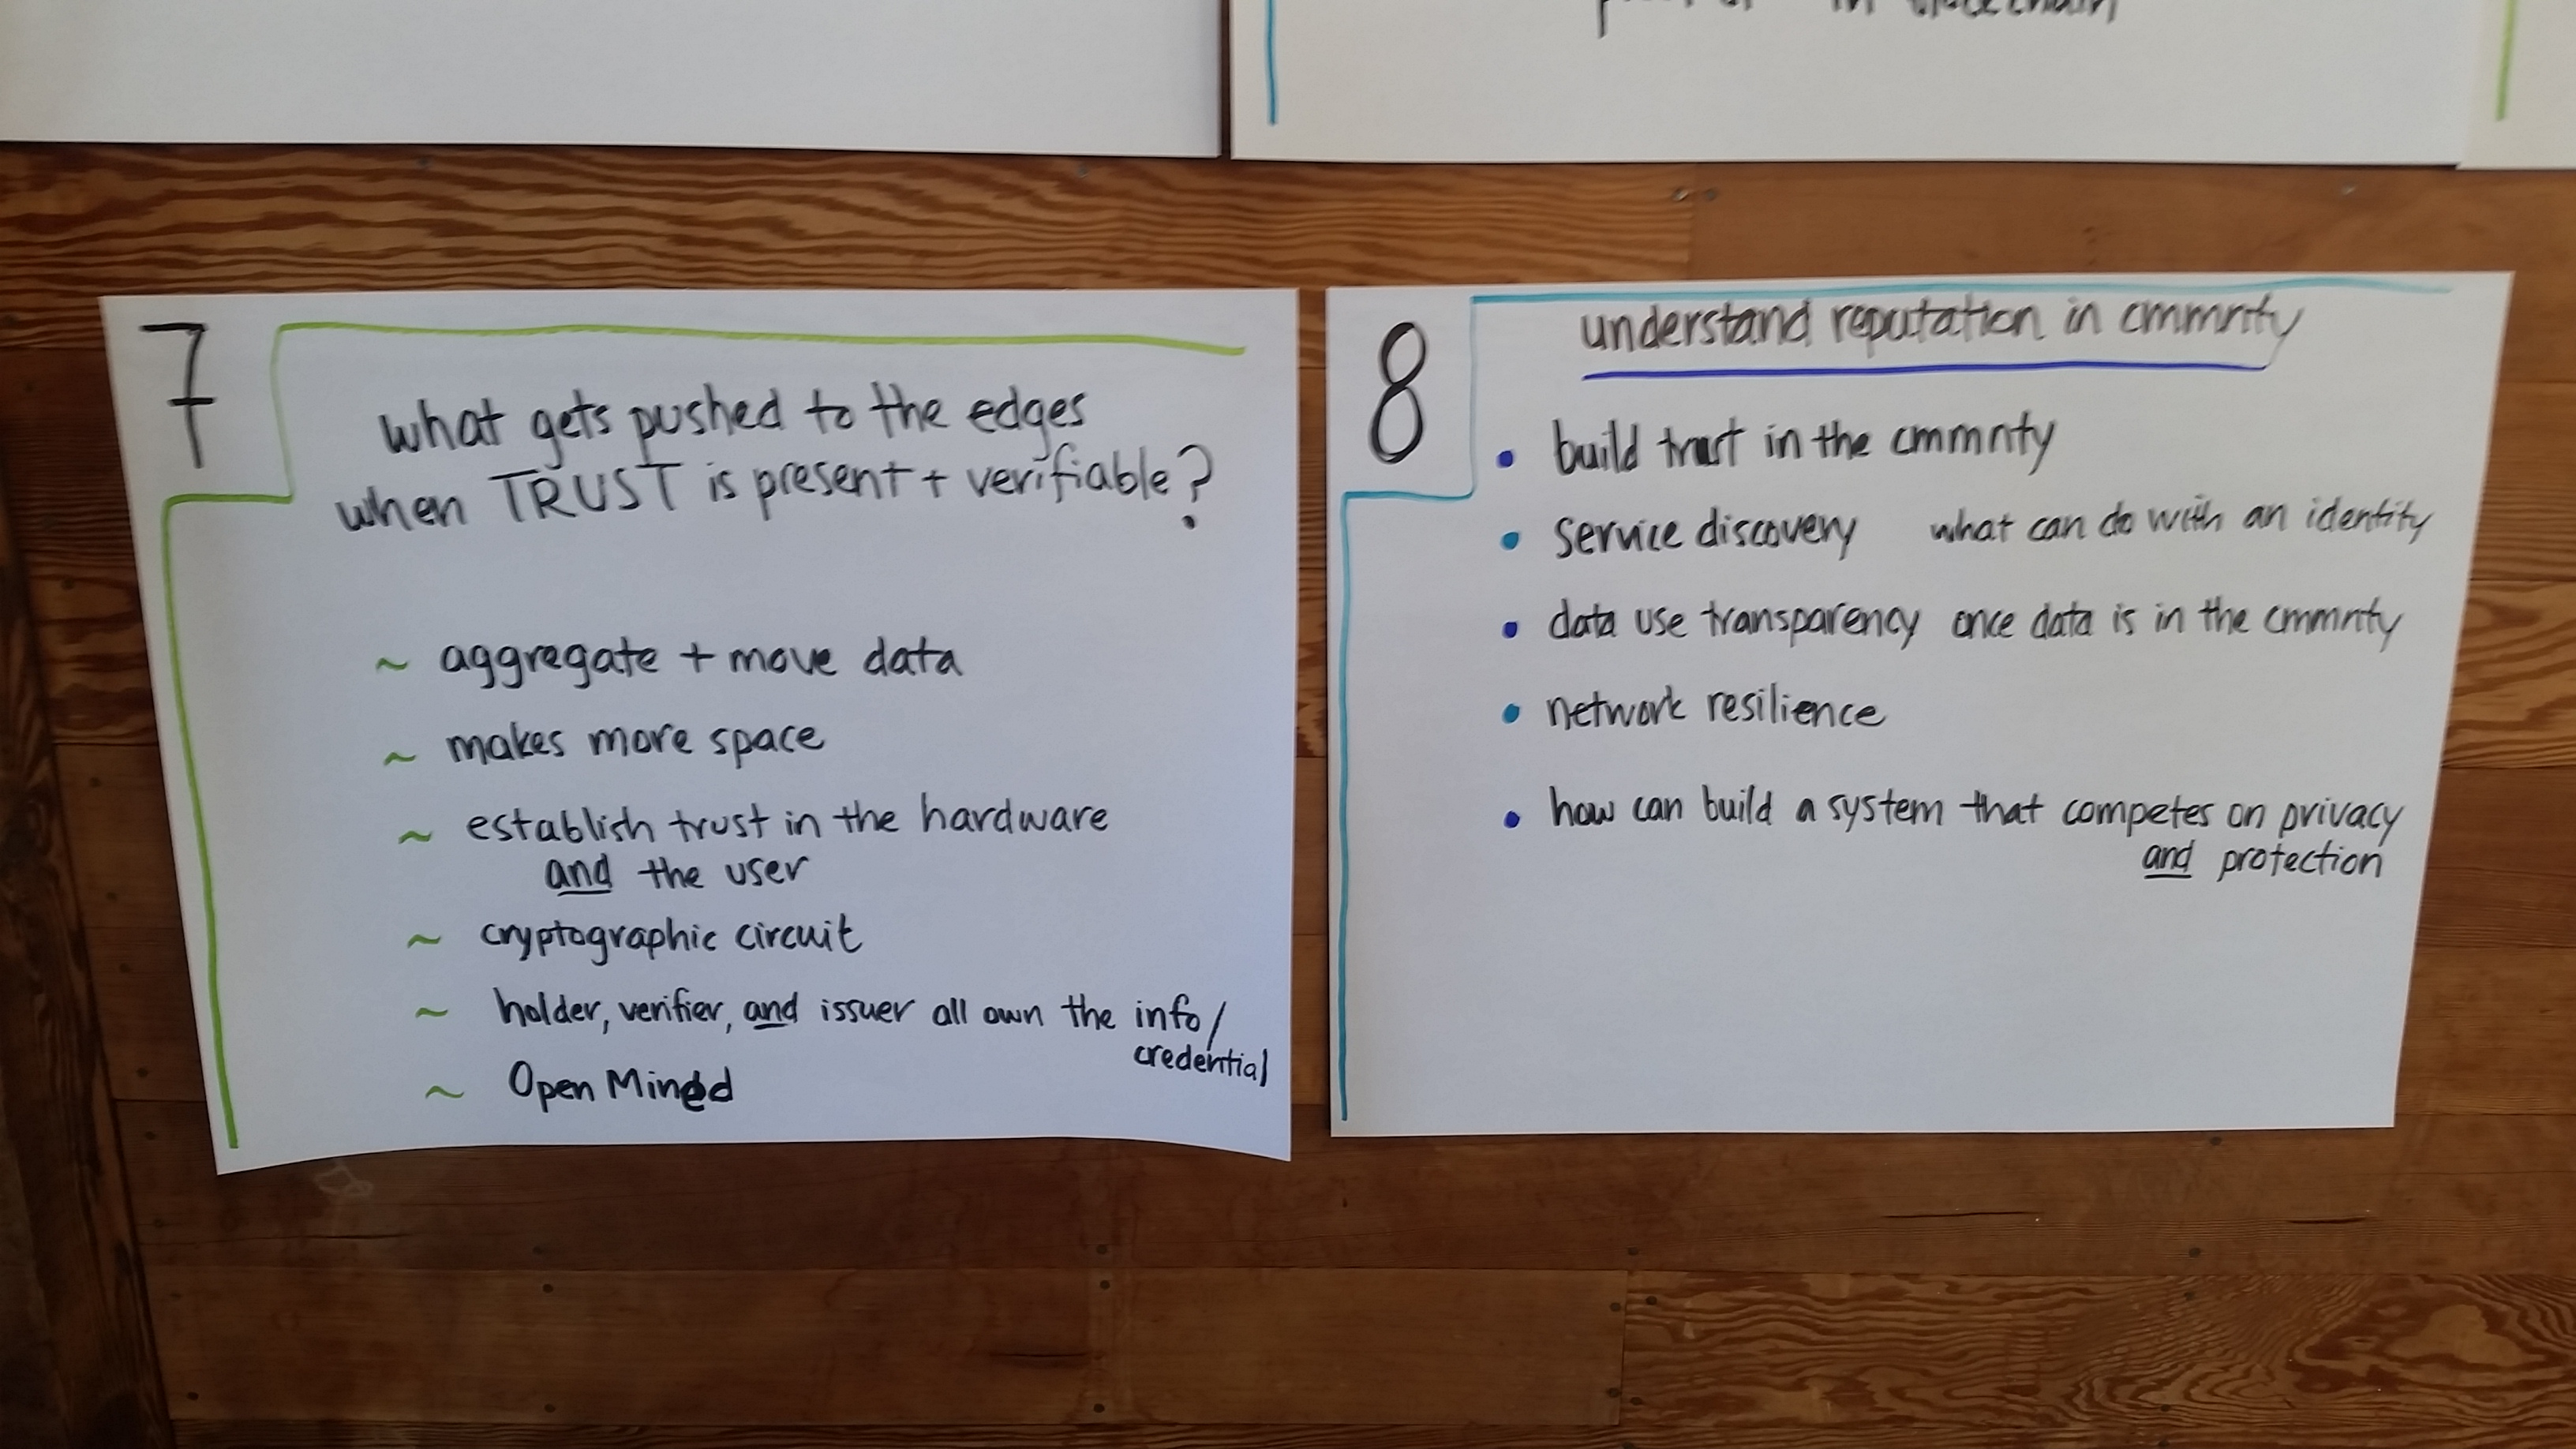 in blockchain
7
what gets pushed to the edges
when TRUST is present + verifiable?
~ aggregate + move data
~ makes more space
~ establish trust in the hardware
and the user
~ cryptographic circuit
~ holder, verifier, and issuer all own the info/
credential
~ Open Mined
8
understand reputation in cmmnty
• build trust in the cmmnty
• service discovery what can do with an identity
• data use transparency once data is in the cmmnty
• network resilience
• how can build a system that competes on privacy
and protection